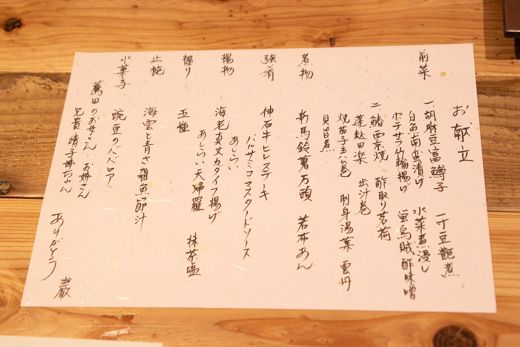 お献立
前菜 一 胡麻豆富 鱒子 一寸豆艶煮
白魚南蛮漬け 水菜煮浸し
ポテサラ竹輪揚げ 蛍烏賊酢味噌
二 鰆西京焼 酢取り茗荷
蓬麩田楽 出汁巻
焼茄子生ハム巻 刺身湯葉 雲丹
貝旨煮
煮物 新馬鈴薯万頭 若布あん
強肴 神石牛ヒレステーキ
バルサミコマスタードソース
あしらい
揚物 海老真丈カダイフ揚げ
あしらい 天婦羅 抹茶塩
握り 五種
止椀 海雲と青さ
水菓子 豌豆のババロア
萬田のお母さん お姉さん
兄貴 晴子姉ちゃん ありがとう 巌